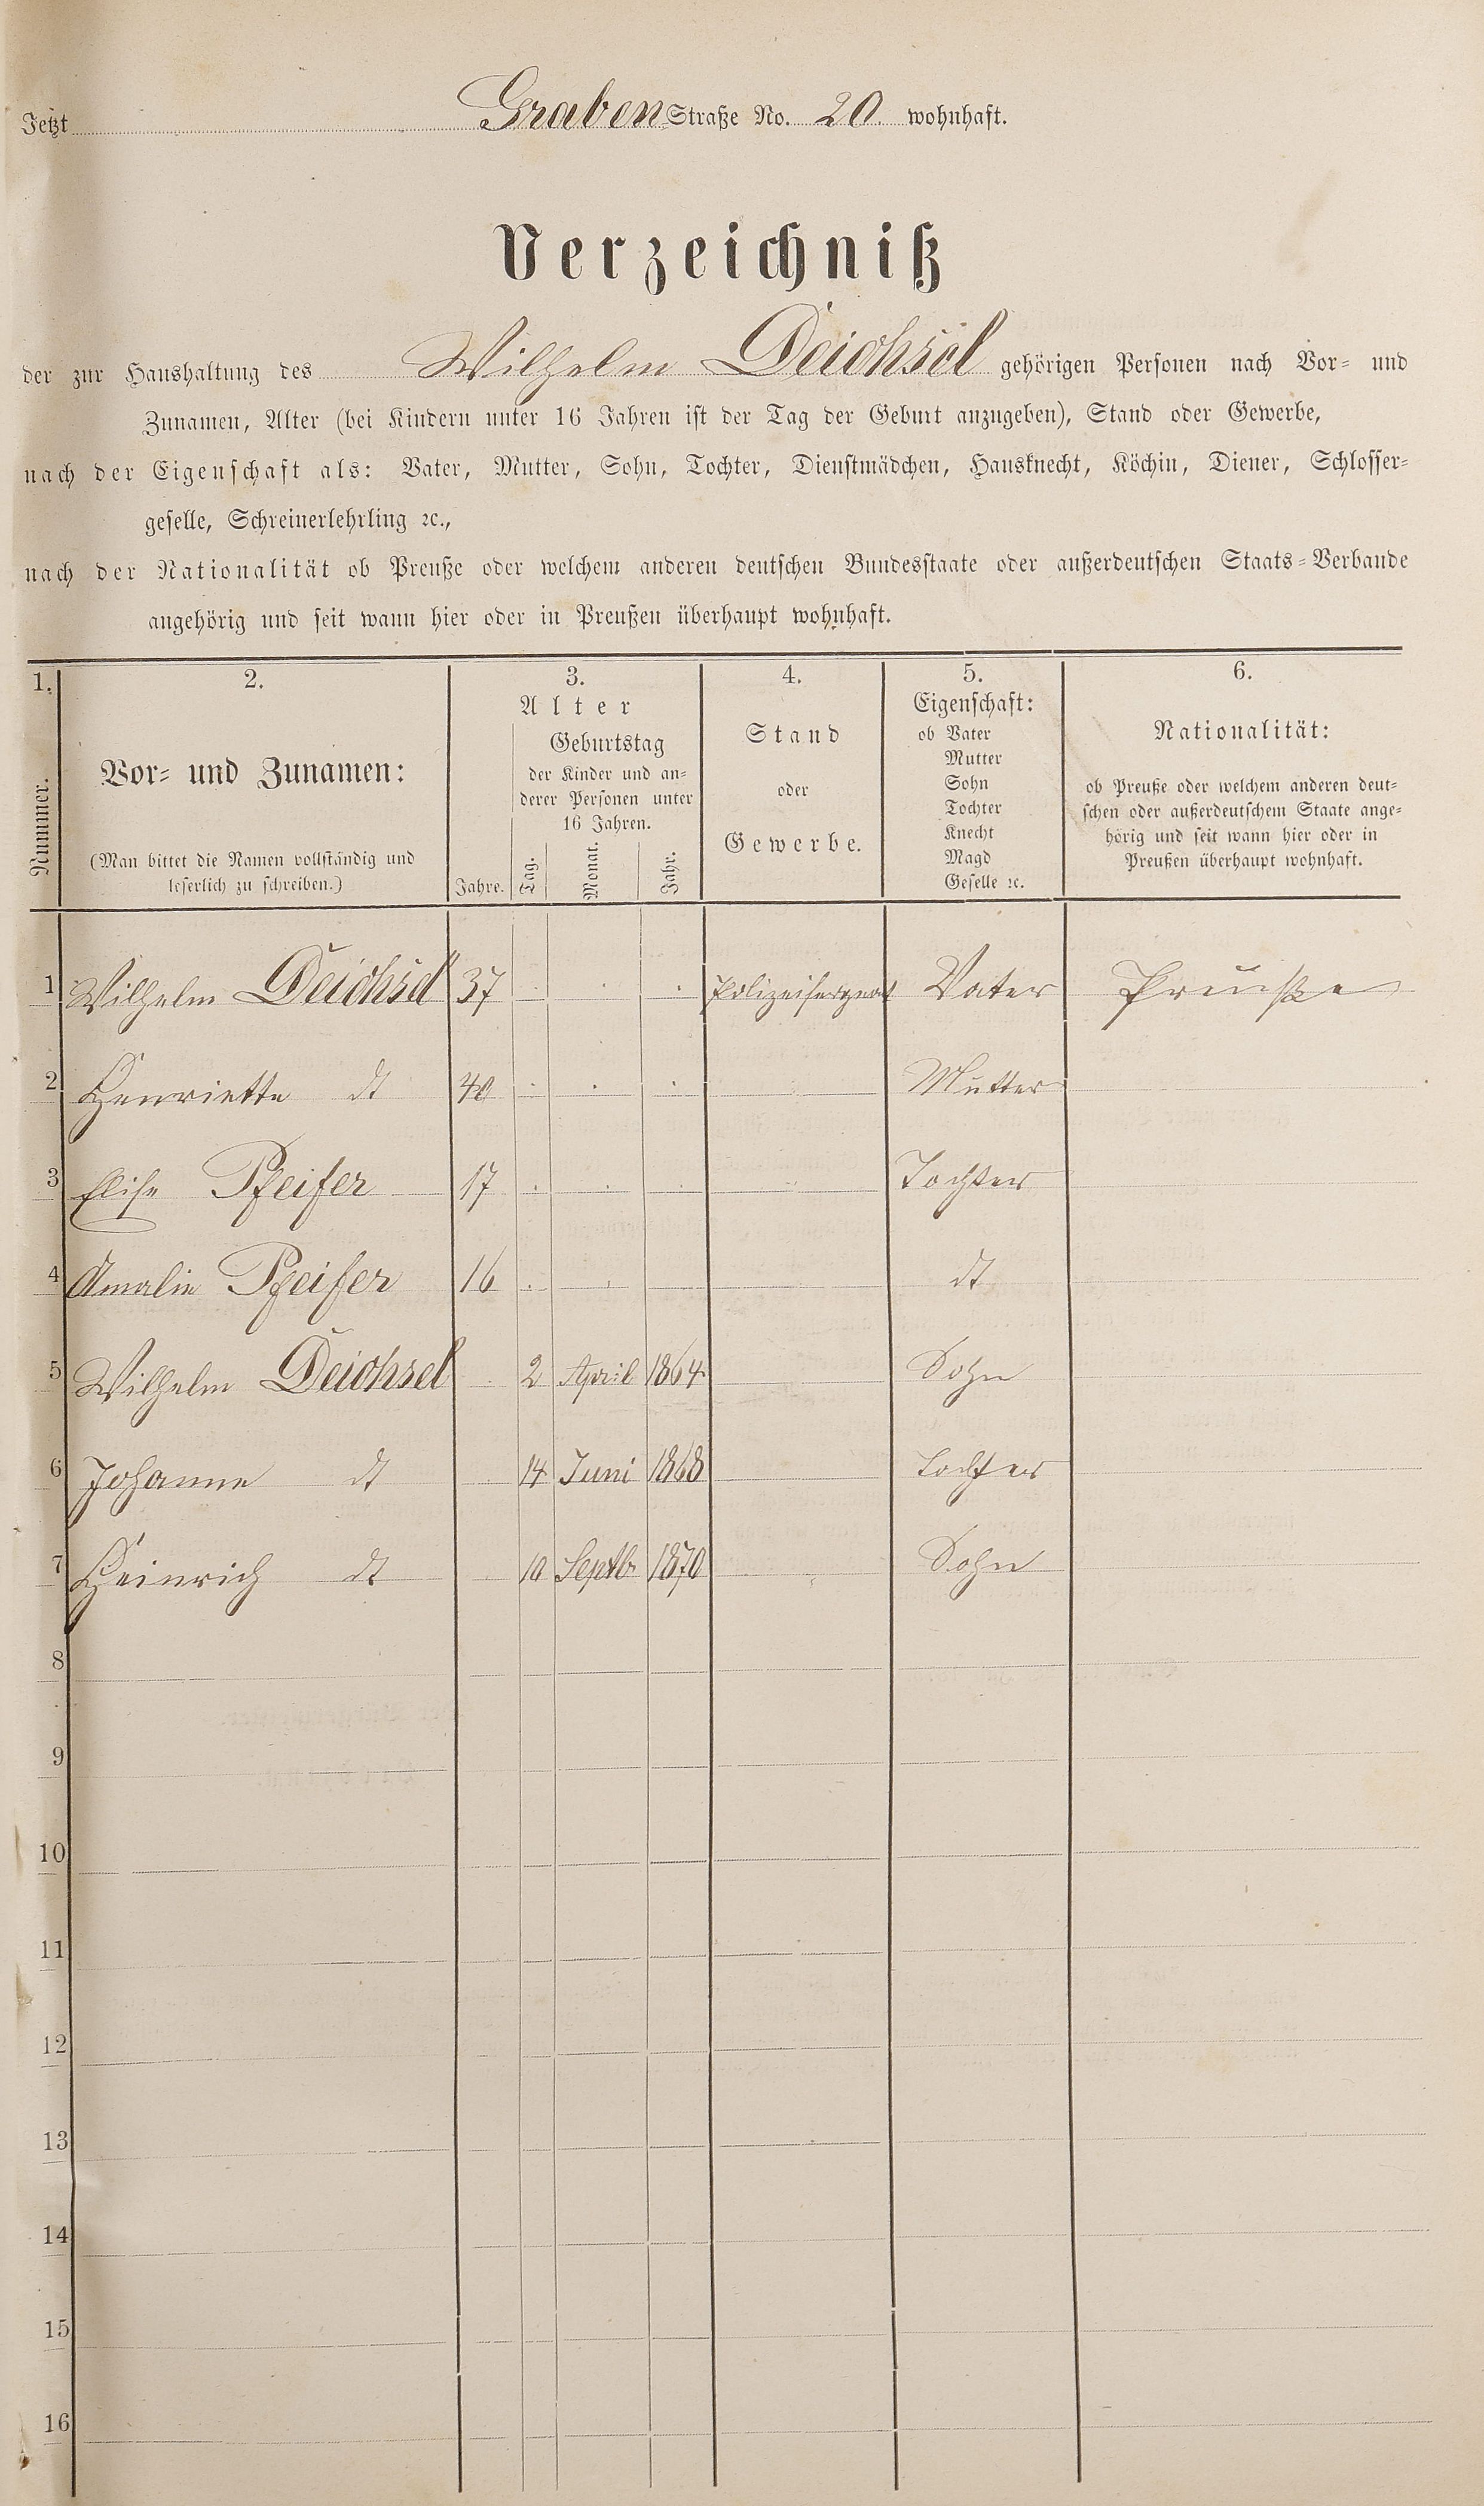 Jetzt Graben Straße No. 20. wohnhaft.
Verzeichniß
der zur Haushaltung des Wilhelm Deichsel gehörigen Personen nach Vor- und
Zunamen, Alter (bei Kindern unter 16 Jahren ist der Tag der Geburt anzugeben), Stand oder Gewerbe,
nach der Eigenschaft als: Vater, Mutter, Sohn, Tochter, Dienstmädchen, Hausknecht, Köchin, Diener, Schlosser-
geselle, Schreinerlehrling ꝛc.,
nach der Nationalität ob Preuße oder welchem anderen deutschen Bundesstaate oder außerdeutschen Staats-Verbande
angehörig und seit wann hier oder in Preußen überhaupt wohnhaft.
1. 2. 3. 4. 5. 6.
Nummer.
Vor- und Zunamen:
(Man bittet die Namen vollständig und
leserlich zu schreiben.)
Alter
Jahre.
Geburtstag
der Kinder und an-
derer Personen unter
16 Jahren.
Tag. Monat. Jahr.
Stand
oder
Gewerbe.
Eigenschaft:
ob Vater
Mutter
Sohn
Tochter
Knecht
Magd
Geselle ꝛc.
Nationalität:
ob Preuße oder welchem anderen deut-
schen oder außerdeutschem Staate ange-
hörig und seit wann hier oder in
Preußen überhaupt wohnhaft.
1 Wilhelm Deichsel 37 Polizeisergeant Vater Preuße
2 Henriette dt 40 Mutter
3 Elise Pfeifer 17 Tochter
4 Amalie Pfeifer 16 dt
5 Wilhelm Deichsel 2 April 1864 Sohn
6 Johanne dt 14 Juni 1868 Tochter
7 Heinrich dt 10 Septb 1870 Sohn
8
9
10
11
12
13
14
15
16